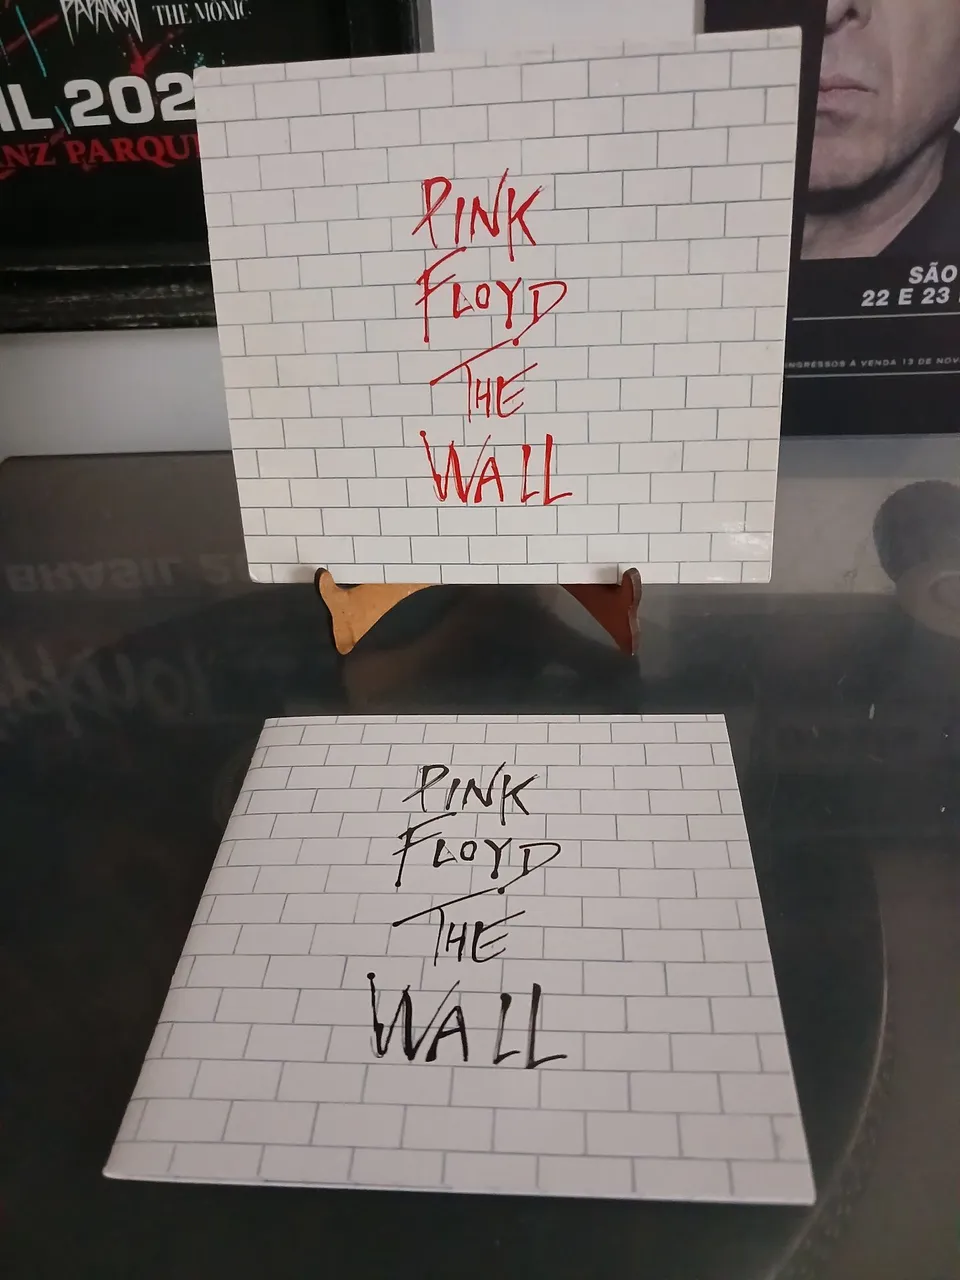 PAPANGU THE MONIC
IL 202
NZ PARQU
PINK
FLOYD
THE
WALL
SÃO
22 E 23
INGRESSOS À VENDA 13 DE NOV
BRASIL 2
PINK
FLOYD
THE
WALL